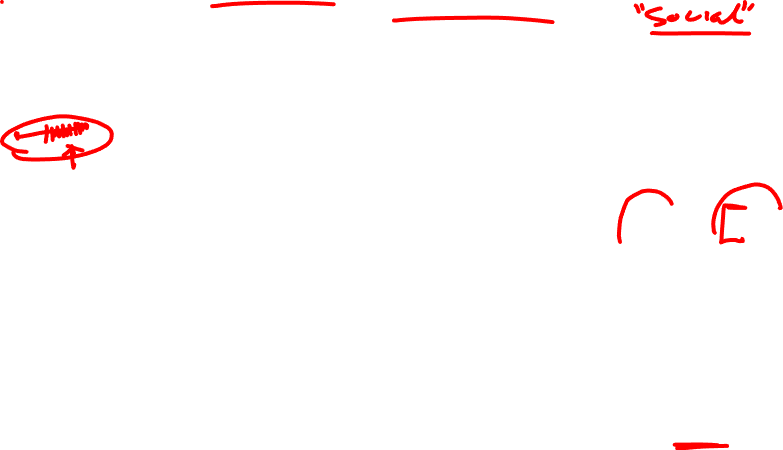 "Social"
E